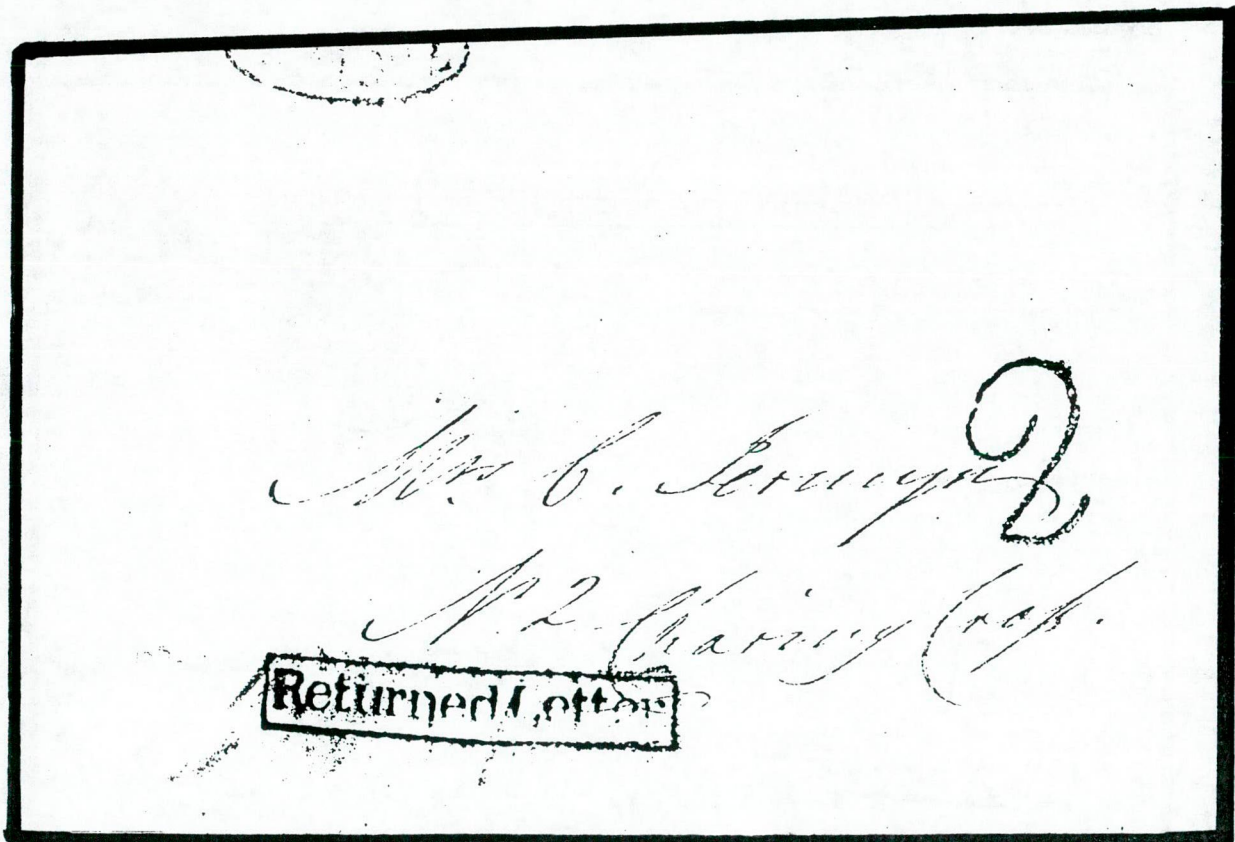 Mrs. C. Jermyn
2
N. 2. Charing Cross.
Returned Letter